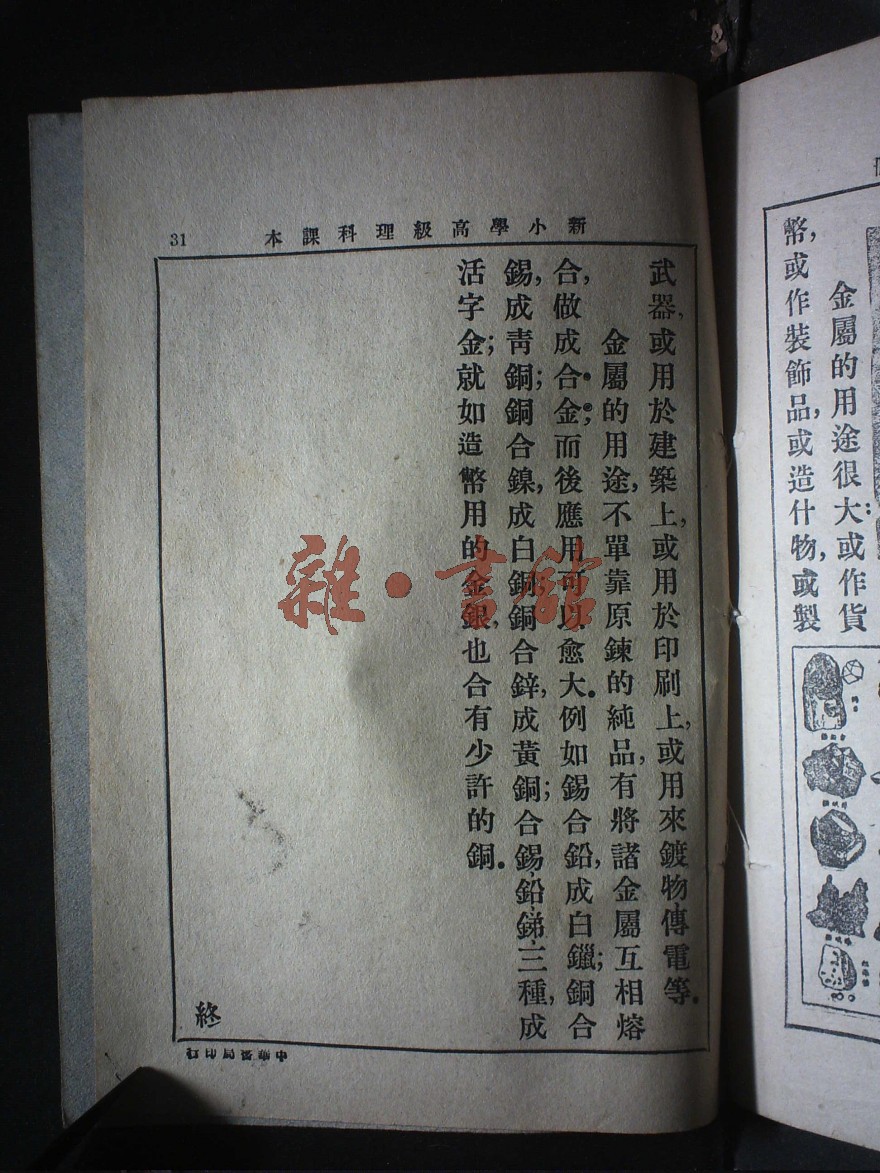 金屬的用途很大：或作貨
幣，或作裝飾品，或造什物，或製
新小學高級理科課本
31
武器，或用於建築上，或用於印刷上，或用來鍍物傳電等。
金屬的用途，不單靠原鍊的純品，有將諸金屬互相熔
合，做成合金；而後應用可以愈大。例如錫合鉛，成白鑞；銅合
錫，成青銅；銅合鎳，成白銅；銅合鋅，成黃銅；合錫鉛銻三種，成
活字金；就如造幣用的金銀，也合有少許的銅。
終
中華書局印行
雜·書館